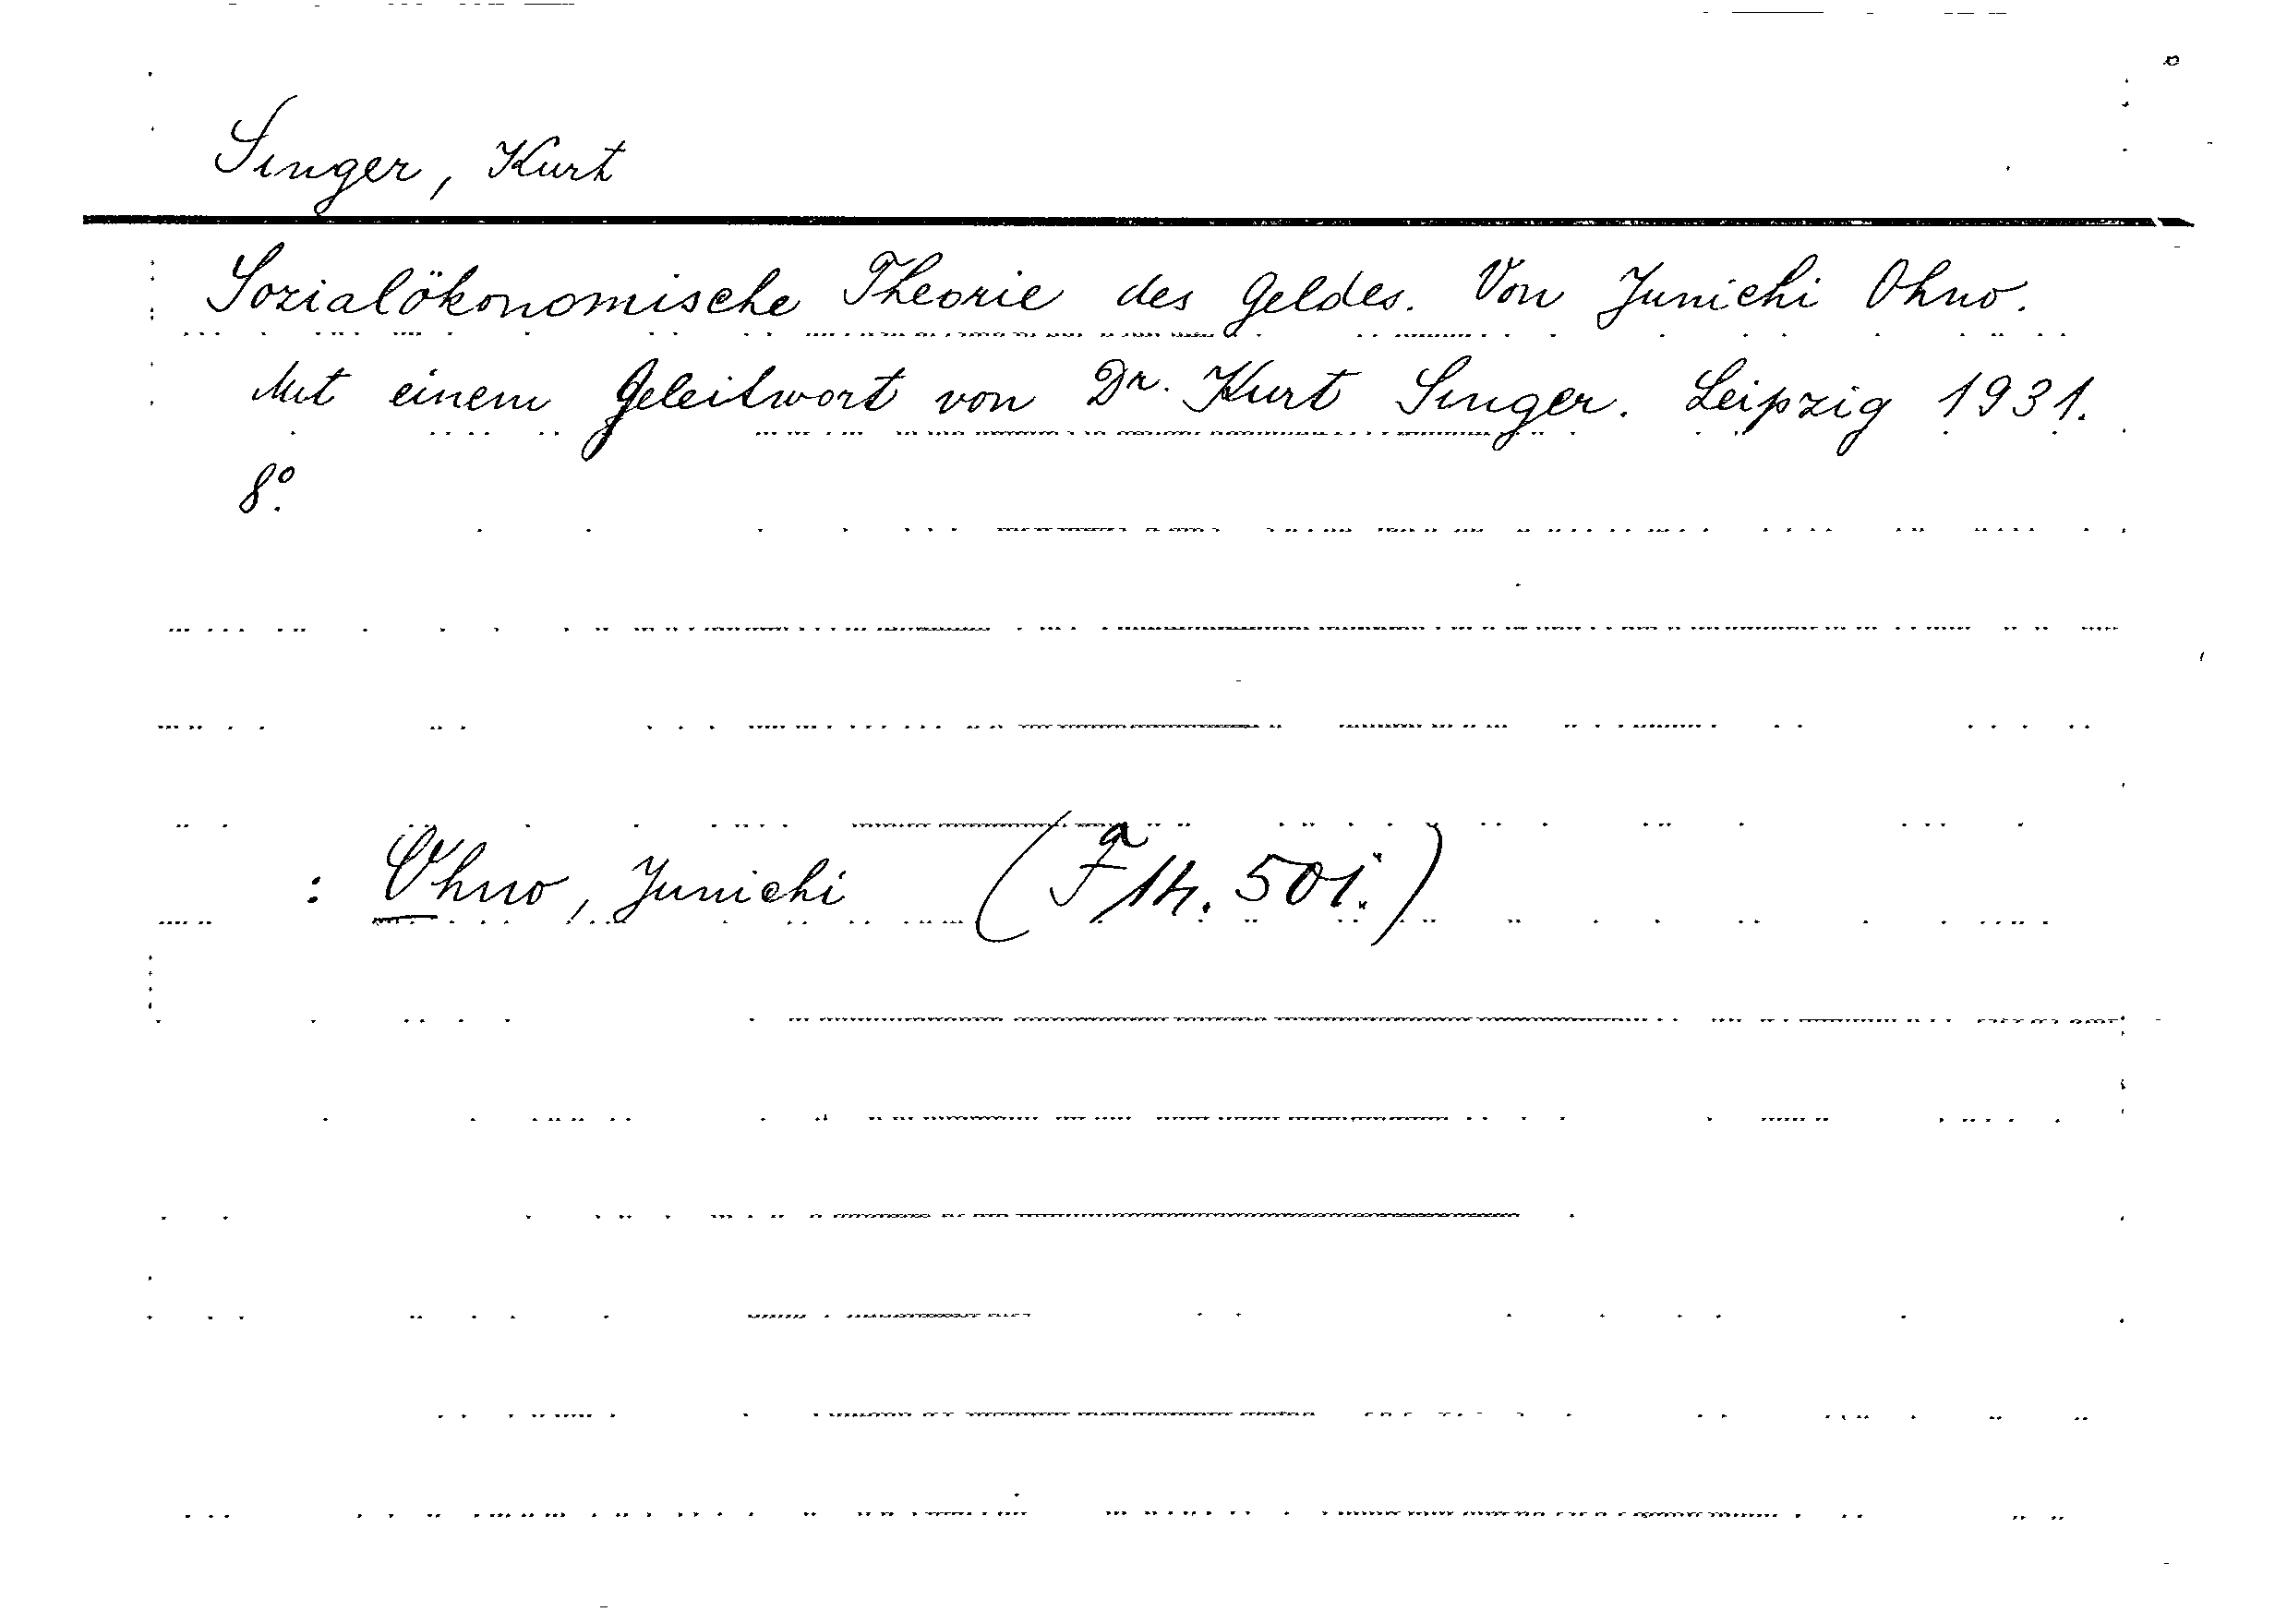 Singer, Kurt
Sozialökonomische Theorie des Geldes. Von Junichi Ohno.
Mit einem Geleitwort von Dr. Kurt Singer. Leipzig 1931.
8°.
: Ohno, Junichi (Fa 14. 501.)